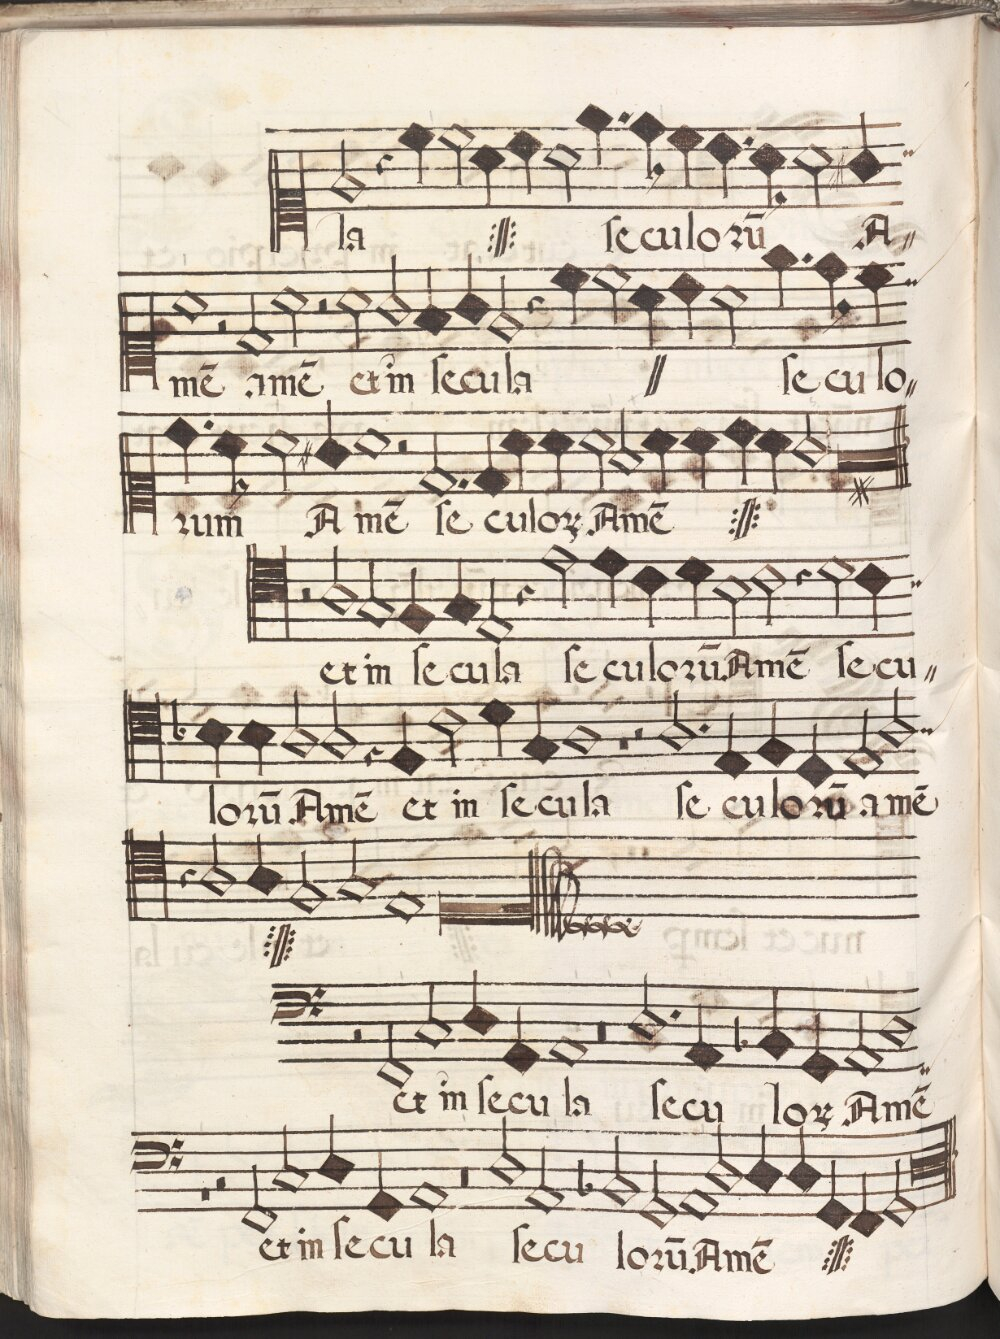 la seculorū A
mē amē et in secula seculo
rum A mē se culoꝝ Amē
et in secula seculorū Amē secu
lorū Amē et in secula seculorū amē
et in secula secu loꝝ Amē
et in secula secu lorū Amē